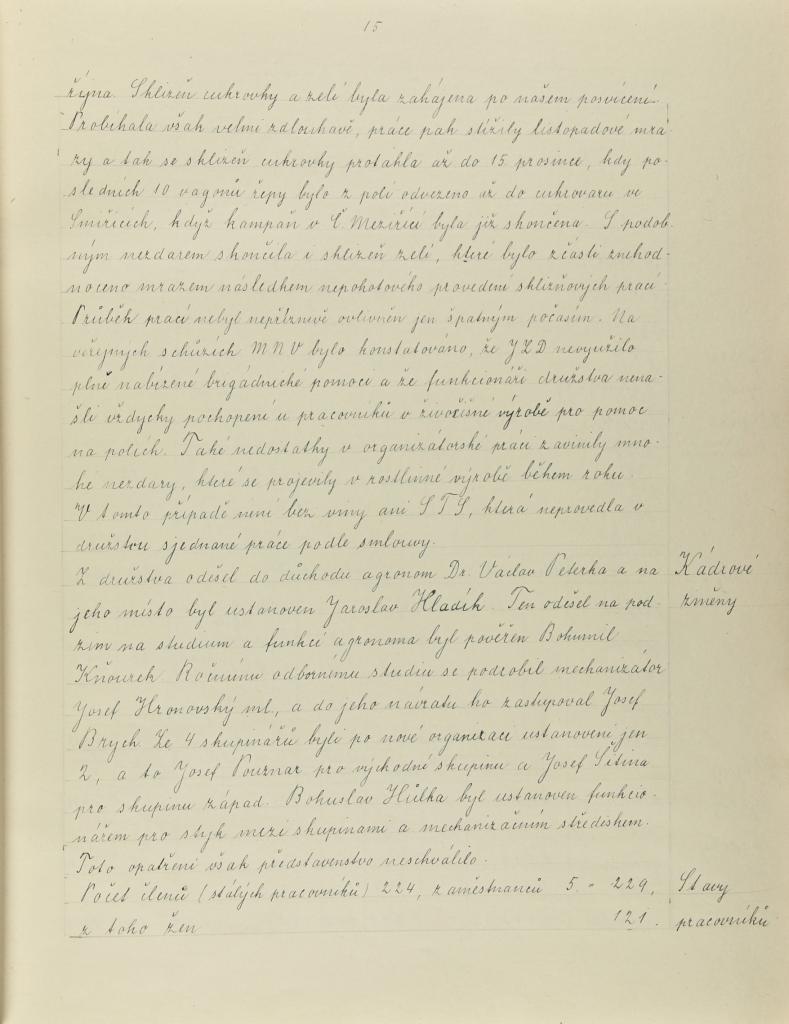 15
října. Sklizeň cukrovky a zelí byla zahájena po našem posvícení.
Probíhala však velmi zdlouhavě, práce pak stížily listopadové mra-
zy a tak se sklizeň cukrovky protáhla až do 15 prosince, kdy po-
sledních 10 vagonů řepy bylo z polí odvezeno až do cukrovaru ve
Smiřicích, když kampaň v Č. Meziříčí byla již skončena. S podob-
ným nezdarem skončila i sklizeň zelí, které bylo zčásti znehod-
noceno mrazem následkem nepohotového provedení sklizňových prací.
Průběh prací nebyl nepříznivě ovlivněn jen špatným počasím. Na
veřejných schůzích MNV bylo konstatováno, že JZD nevyužilo
plně nabízené brigádnické pomoci a že funkcionáři družstva nena-
šli vždycky pochopení u pracovníků v živočišné výrobě pro pomoc
na polích. Také nedostatky v organizátorské práci zavinily mno-
hé nezdary, které se projevily v rostlinné výrobě během roku.
V tomto případě není bez viny ani STS, která neprovedla v
družstvu sjednané práce podle smlouvy.
Z družstva odešel do důchodu agronom Dr. Václav Peterka a na
Kádrové
jeho místo byl ustanoven Jaroslav Hladík. Ten odešel na pod-
změny
zim na studium a funkcí agronoma byl pověřen Bohumil
Kňourek. Ročnímu odbornému studiu se podrobil mechanizátor
Josef Hronovský ml., a do jeho návratu ho zastupoval Josef
Brych. Ze 4 skupinářů byli po nové organizaci ustanoveni jen
2, a to Josef Pouznar pro východné skupinu a Josef Sitina
pro skupinu západ. Bohuslav Hůlka byl ustanoven funkcio-
nářem pro styk mezi skupinami a mechanizačním střediskem.
Toto opatření však představenstvo neschválilo.
Počet členů (stálých pracovníků) 224, zaměstnanců 5. = 229,
Stavy
z toho žen 121.
pracovníků